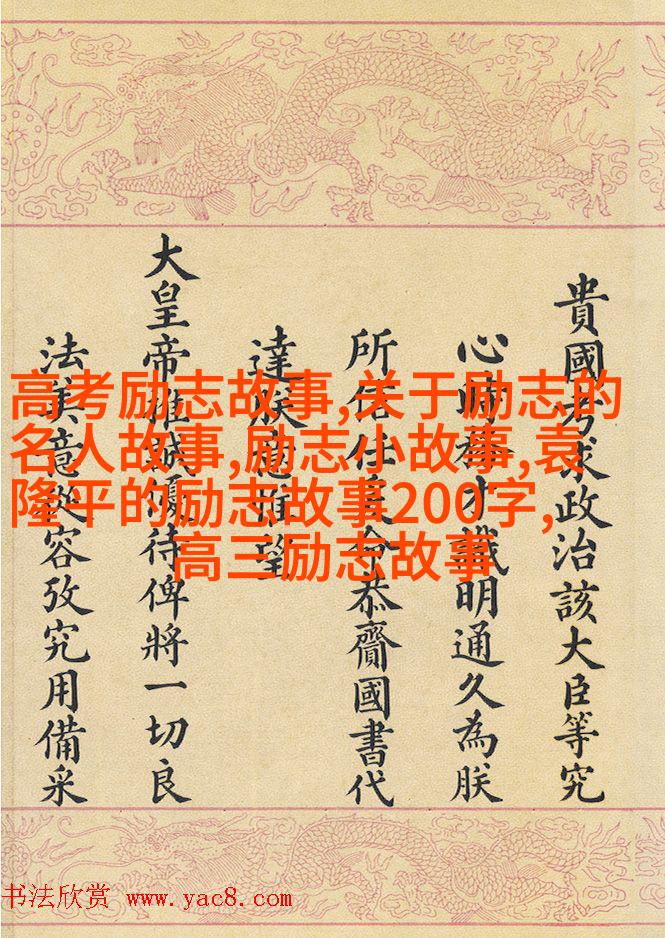 貴國考求政治該大臣等究
心時務才識明通久為朕
所信任命恭齎國書代
達朕望
大皇帝推誠優待俾將一切良
法美意從容攷究用備采
高考励志故事,关于励志的
名人故事,励志小故事,袁
隆平的励志故事200字,
高三励志故事
书法欣赏 www.yac8.com